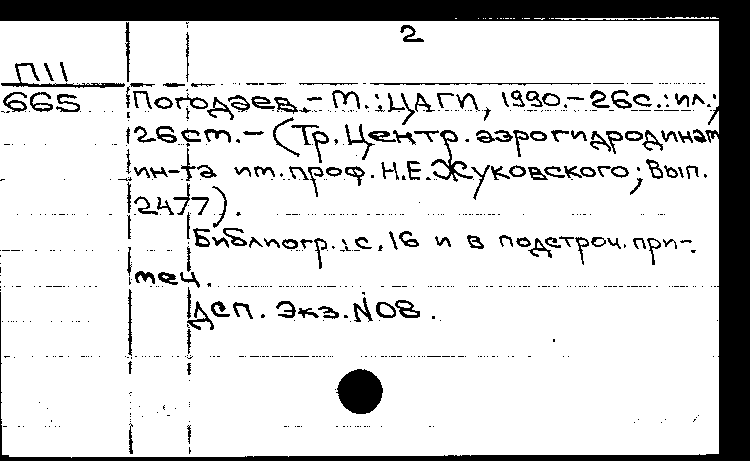 2
П11
665 Погодаев.- М.: ЦАГИ, 1990.- 26с.: ил.;
26см.- (Тр. Центр. аэрогидродинам
ин-та им. проф. Н.Е.Жуковского; Вып.
2477).
Библиогр.: с. 16 и в подстроч. при-
меч.
ДСП. Экз. N08.